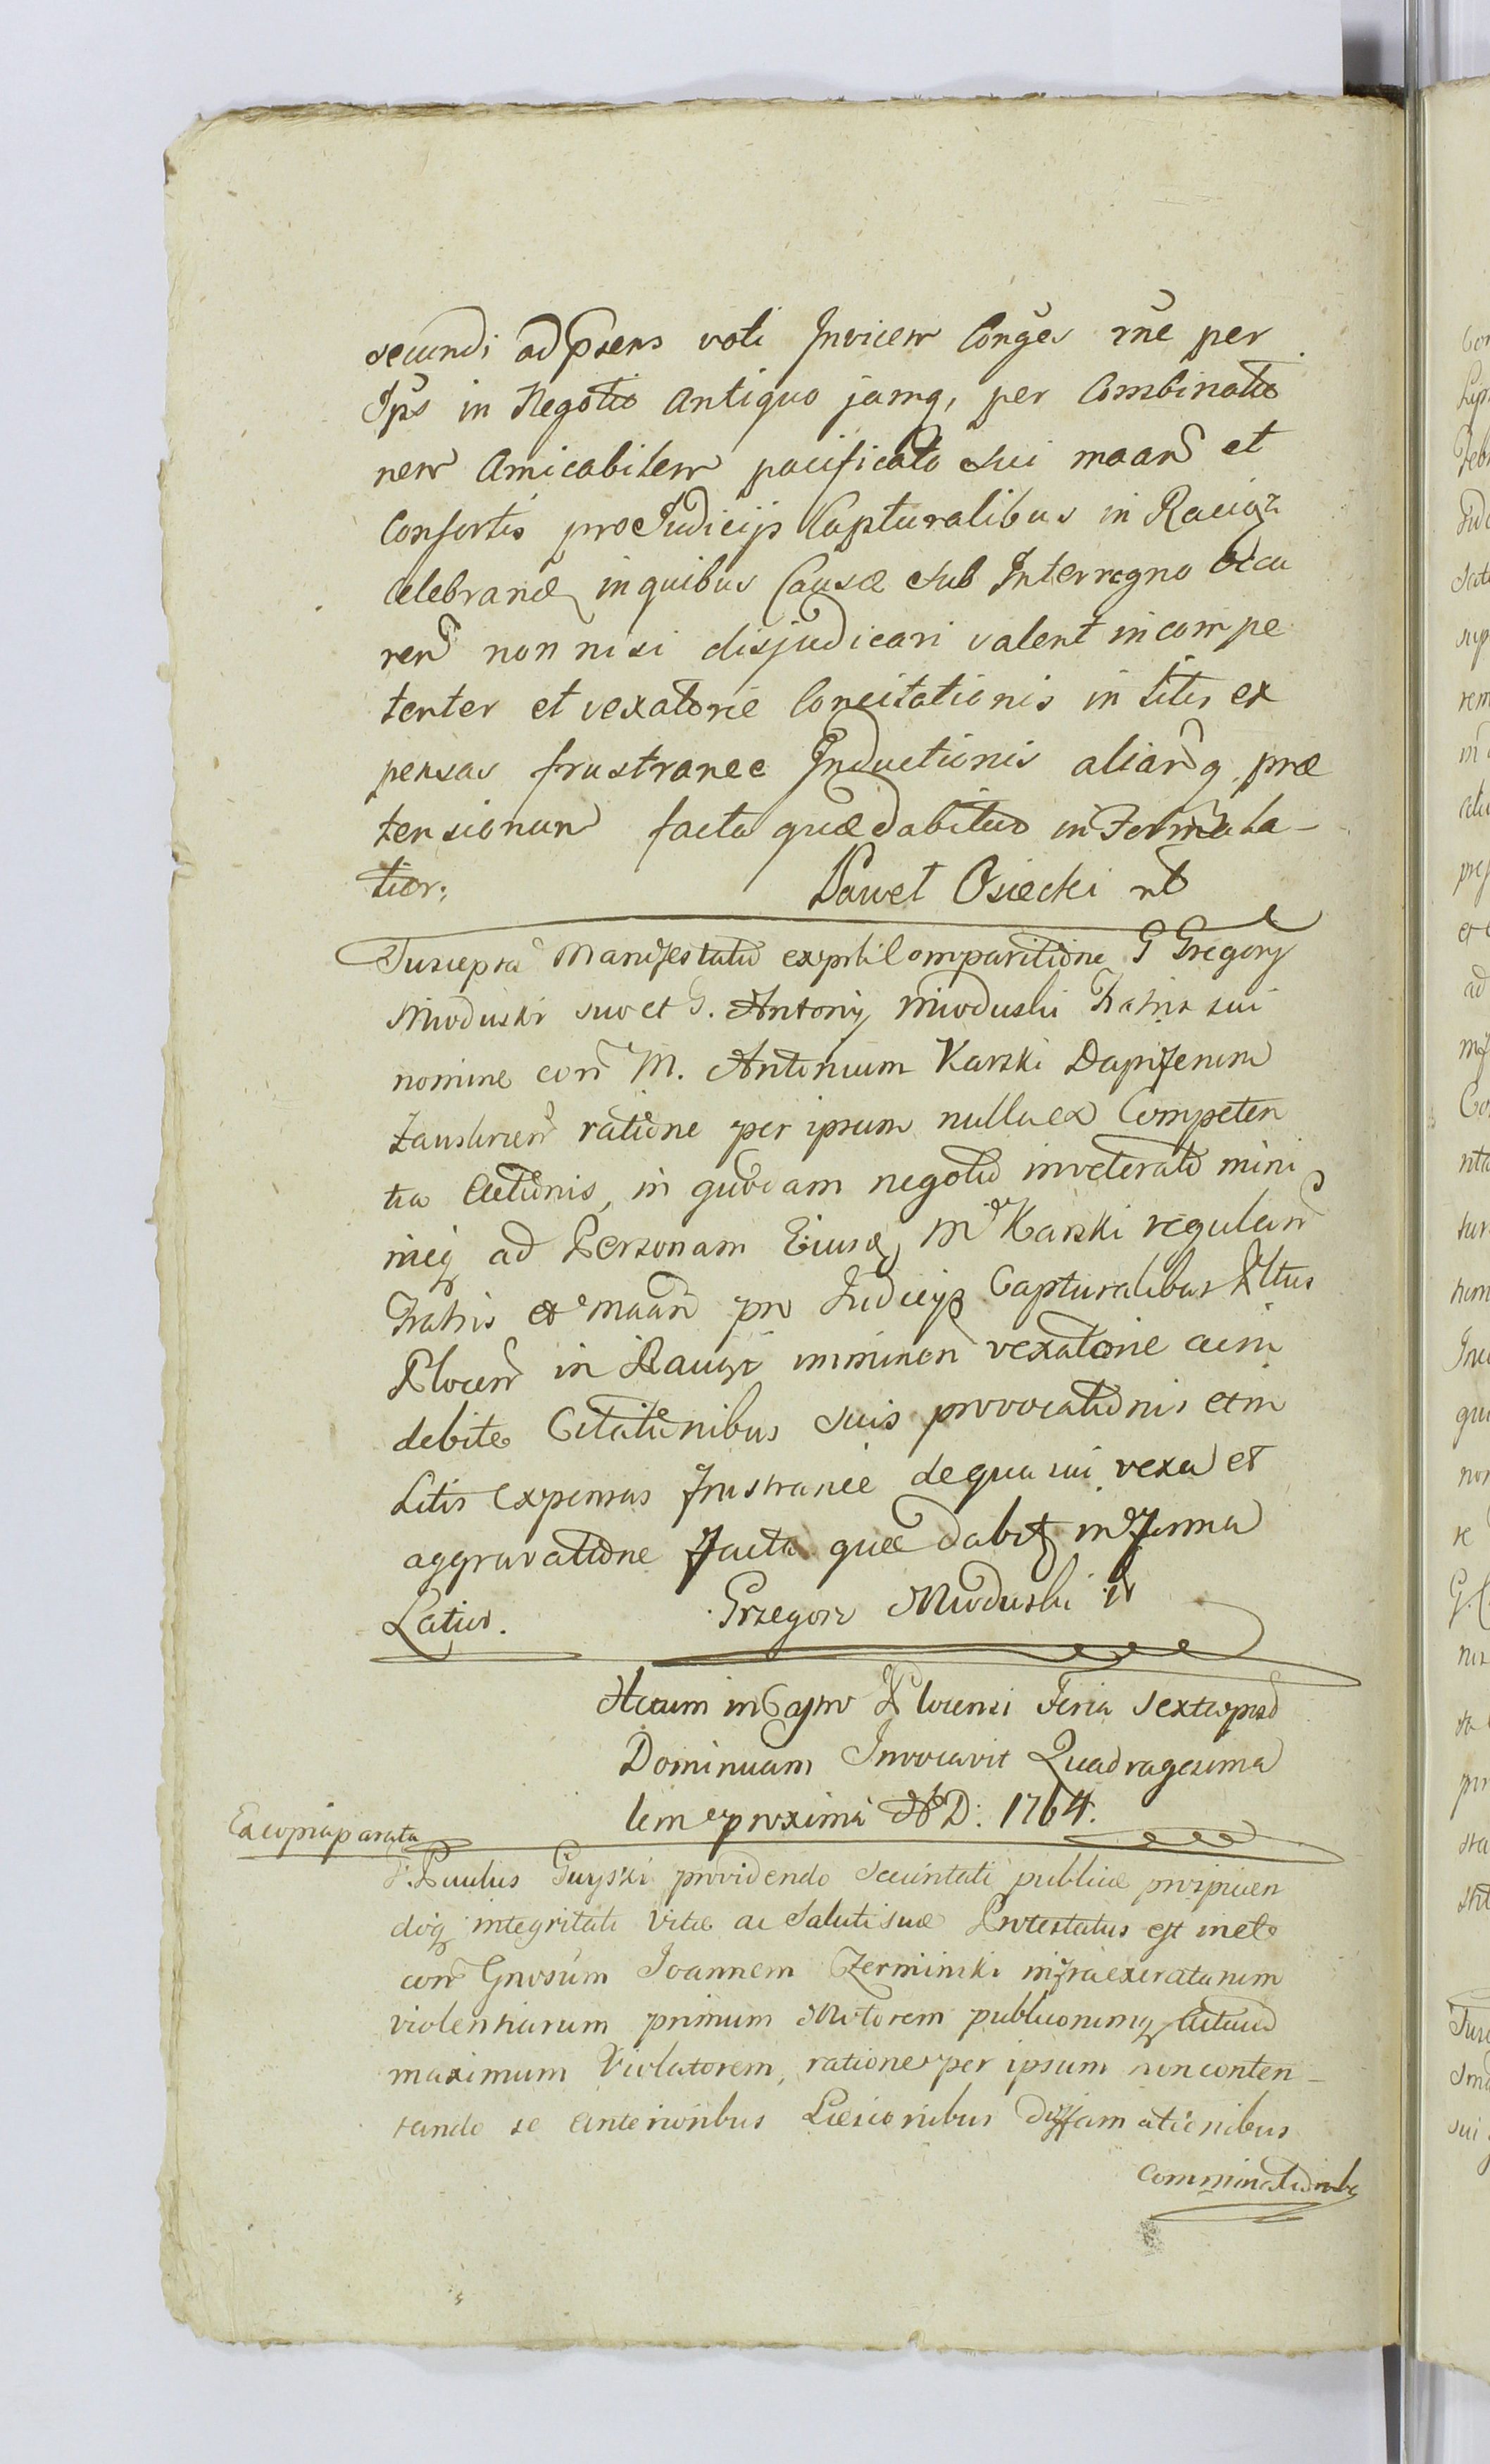 secundi ad psens voti Invicem Conges rne per
Ips in Negotio Antiquo jamq, per Combinatio
nem Amicabilem pacificato sui maan et
Consortis pro Judicijs Capturalibus in Raciąż
celebrand in quibus Causæ sub Interregno occu
ren non nisi disjudicari valent incompe
tenter et vexatorie Concitationis in litis ex
pensas frustranee Inductionis aliarq præ
tensionum facta quæ dabitur in Forma la-
tior. Paweł Osiecki
Suscepta Manifestatio ex psti Comparitione G Gregorij
Mioduski suo et G. Antonij Mioduski Fratris sui
nomine con M. Antonium Karski Dapiferum
Zauskrzen ratione per ipsum nulla ex Competen
tia Actionis, in quodam negotio inveterato mini
meq ad Personam Eiusd M Karski regulan
Fratris et maan pro Judicijs Capturalibus Plttus
Plocen in Raciąż imminen vexatorie ac in
debite Citationibus suis provocationis et in
Litis expensas frustranee de qua sui vexa et
aggravatione facta quæ dabit in forma
Latior. Grzegorz Mioduski
Actum in Castro Plocensi Feria Sexta post
Dominicam Invocavit Quadragesima
lem proxima A D: 1764.
Ex copia parata
G. Paulus Guyski providendo Securitati publicæ prospicien
doq integritati Vitæ ac Saluti suæ Protestatus est
con Gnosum Joannem Czerminski infraexercatarum
violentiarum primum Motorem publicorumq
maximum Violatorem, ratione per ipsum non conten-
tando se anterioribus Læsionibus diffamationibus
Comminationibq